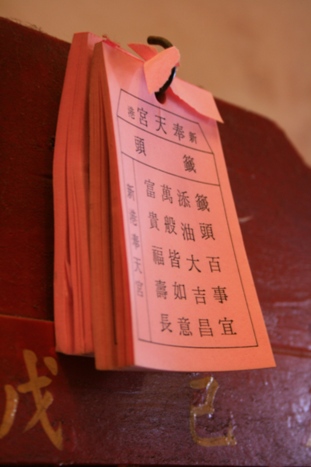 新奉天宮港
籤頭
籤頭百事宜
添油大吉昌
萬般皆如意
富貴福壽長
新港奉天宮
戊
己